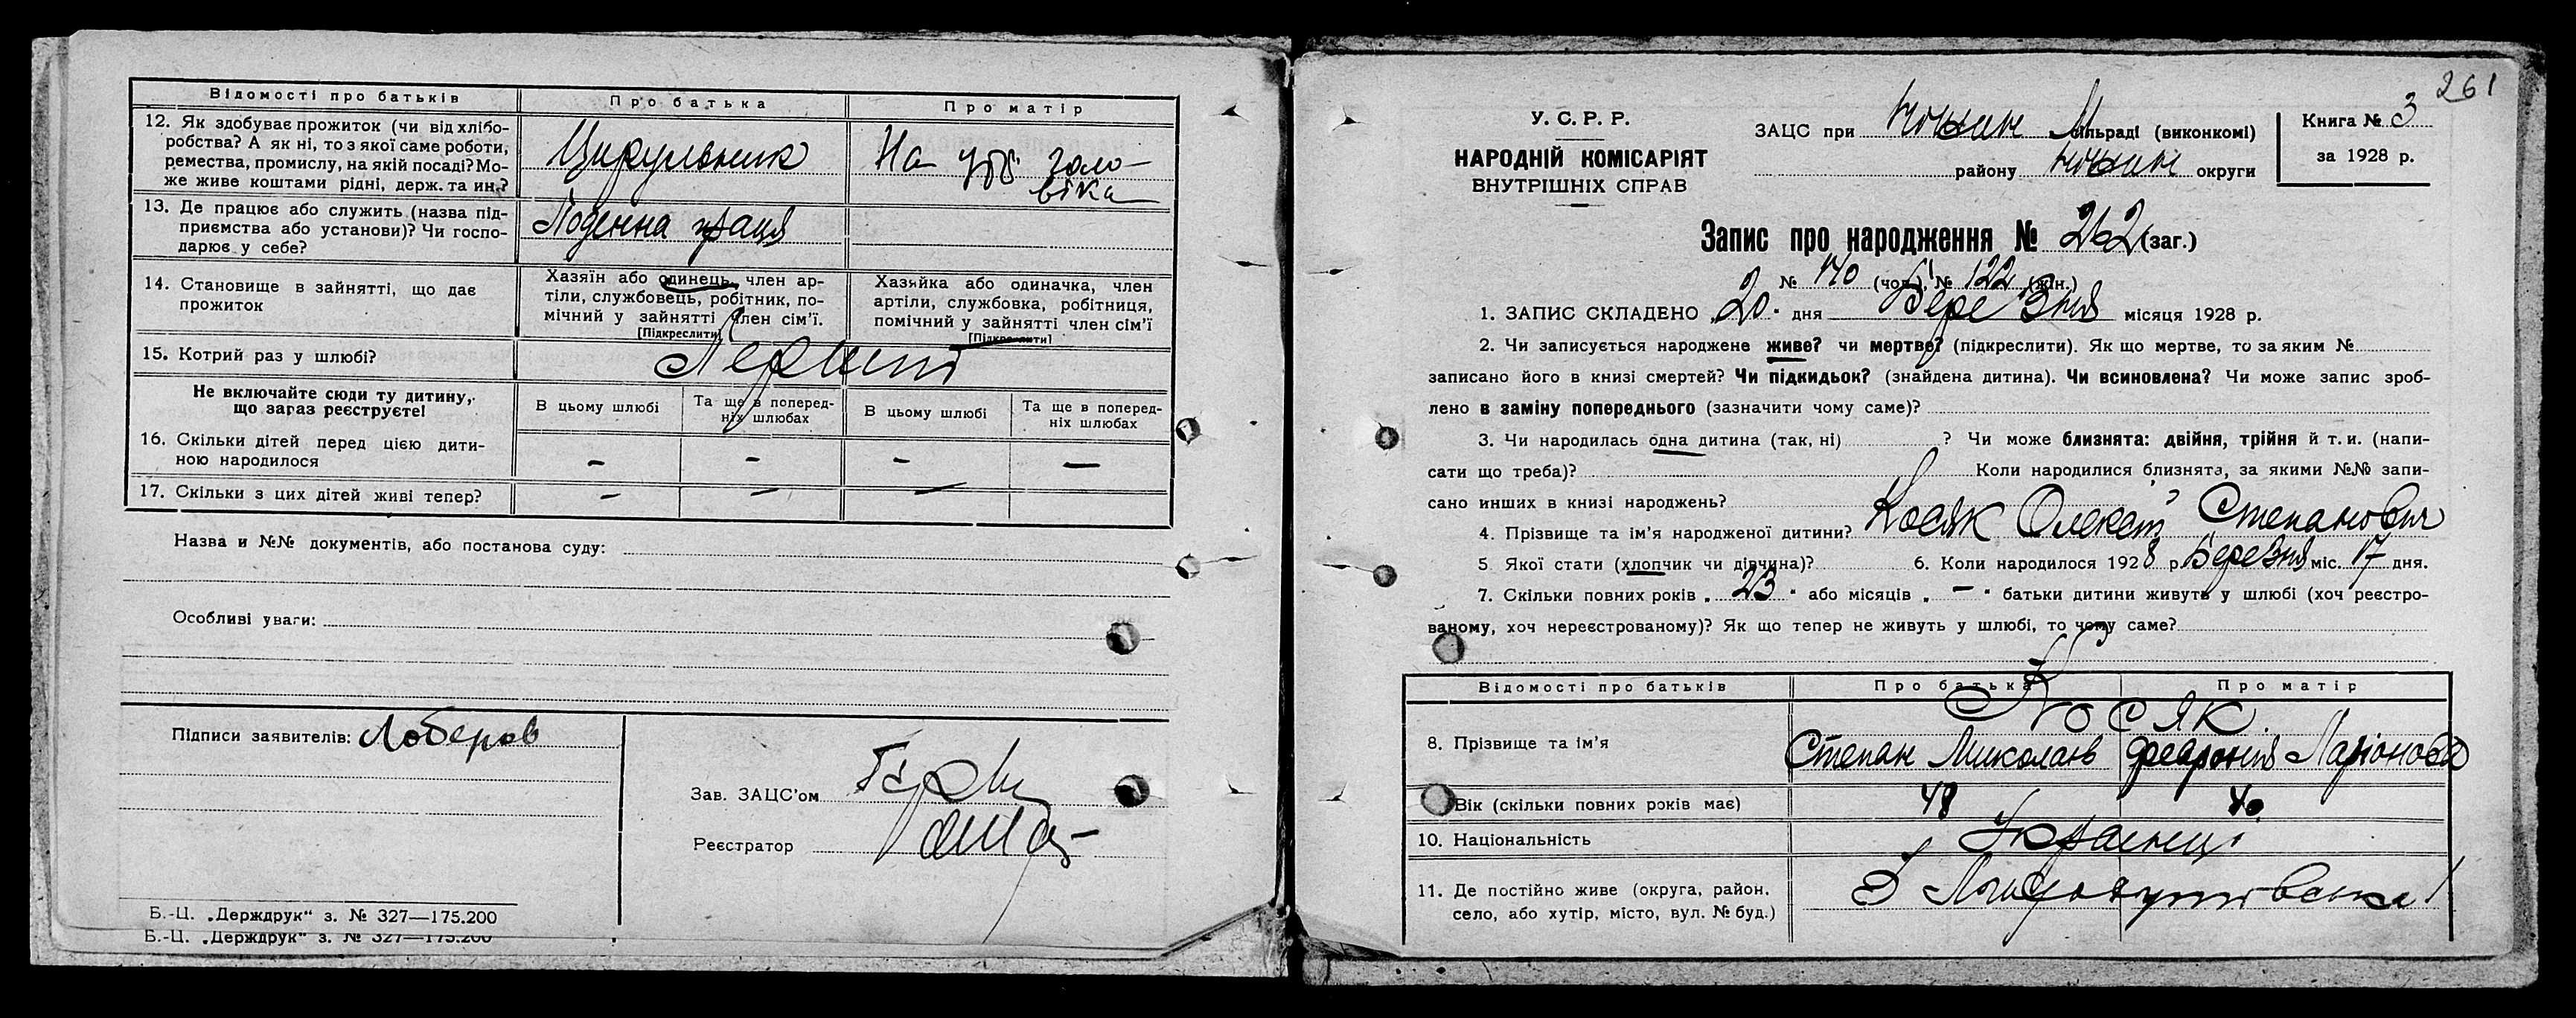 Відомості про батьків
Про батька
Про матір
12. Як здобуває прожиток (чи від хлібо-
робства? А як ні, то з якої саме роботи,
ремества, промислу, на якій посаді? Мо-
же живе коштами рідні, держ. та ин.?
Цирульник
На утр. чоло-
віка
13. Де працює або служить (назва під-
приємства або установи)? Чи госпо-
дарює у себе?
Поденна праця
14. Становище в зайнятті, що дає
прожиток
Хазяїн або одинець, член ар-
тіли, службовець, робітник, по-
мічний у зайнятті член сім'ї.
[Підкреслити]
Хазяйка або одиначка, член
артіли, службовка, робітниця,
помічний у зайнятті член сім'ї
[Підкреслити]
15. Котрий раз у шлюбі?
Перший
Не включайте сюди ту дитину,
що зараз реєструєте!
В цьому шлюбі
Та ще в поперед-
ніх шлюбах
В цьому шлюбі
Та ще в поперед-
ніх шлюбах
16. Скільки дітей перед цією дити-
ною народилося
– – – –
17. Скільки з цих дітей живі тепер?
– – –
Назва и №№ документів, або постанова суду:
Особливі уваги:
Підписи заявителів:
Зав. ЗАЦС'ом
Реєстратор
Б.-Ц. „Держдрук" з. № 327—175.200
Б.-Ц. „Держдрук" з. № 327—175.200
261
У. С. Р. Р.
НАРОДНІЙ КОМІСАРІЯТ
ВНУТРІШНІХ СПРАВ
ЗАЦС при сільраді (виконкомі)
району округи
Книга № 3
за 1928 р.
Запис про народження № 262 (заг.)
№ 140 (чол.), № 122 (жін.)
1. ЗАПИС СКЛАДЕНО „20" дня Березня місяця 1928 р.
2. Чи записується народжене живе? чи мертве? (підкреслити). Як що мертве, то за яким №
записано його в книзі смертей? Чи підкидьок? (знайдена дитина). Чи всиновлена? Чи може запис зроб-
лено в заміну попереднього (зазначити чому саме)?
3. Чи народилась одна дитина (так, ні) ? Чи може близнята: двійня, трійня й т. и. (напи-
сати що треба)? Коли народилися близнята, за якими №№ запи-
сано инших в книзі народжень?
4. Прізвище та ім'я народженої дитини? Косяк Олекст Степанович
5. Якої стати (хлопчик чи дівчина)? 6. Коли народилося 1928 р. Березня міс. 17 дня.
7. Скільки повних років „ 23 " або місяців „ – " батьки дитини живуть у шлюбі (хоч реєстро-
ваному, хоч нереєстрованому)? Як що тепер не живуть у шлюбі, то чому саме?
Відомості про батьків
Про батька
Про матір
8. Прізвище та ім'я
Косяк
Степан Миколаїв
Февронія Ларіонова
Вік (скільки повних років має)
48
40
10. Національність
Українці
11. Де постійно живе (округа, район,
село, або хутір, місто, вул. № буд.)